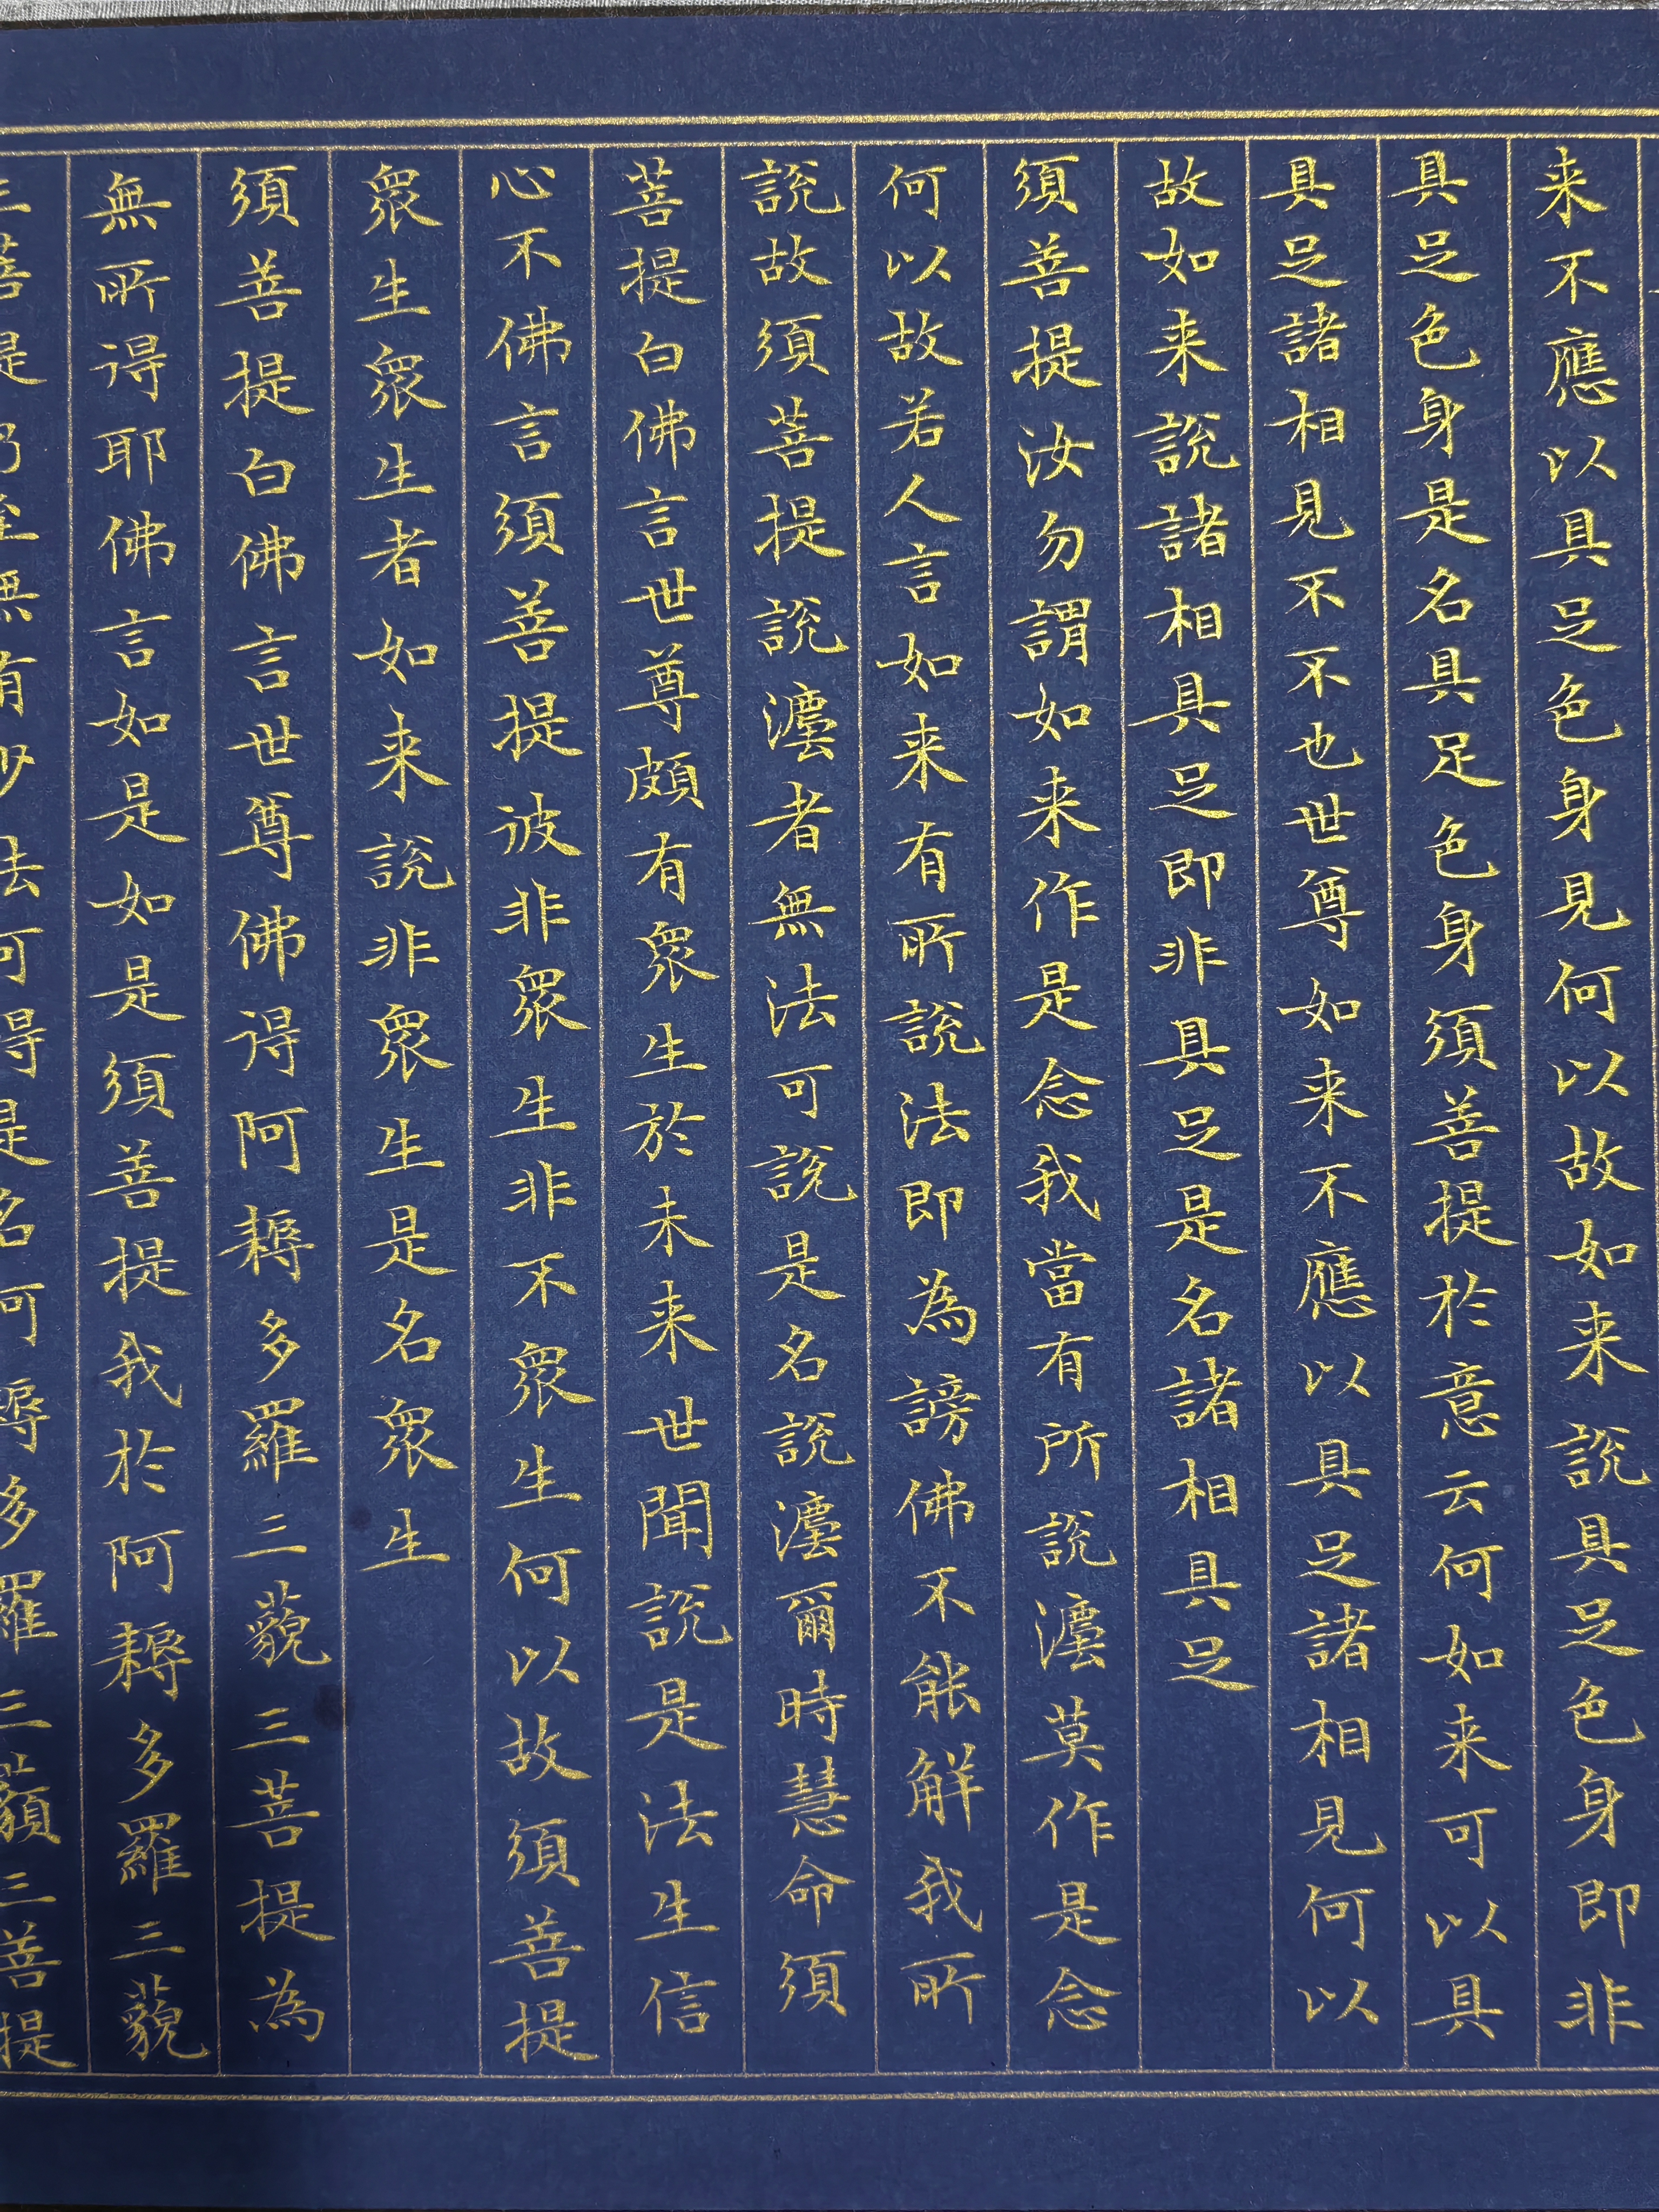 来不應以具足色身見何以故如来說具足色身即非
具足色身是名具足色身須菩提於意云何如来可以具
具足諸相見不不也世尊如来不應以具足諸相見何以
故如来說諸相具足即非具足是名諸相具足
須菩提汝勿謂如来作是念我當有所說灋莫作是念
何以故若人言如来有所說法即為謗佛不能解我所
說故須菩提說灋者無法可說是名說灋爾時慧命須
菩提白佛言世尊頗有眾生於未来世聞說是法生信
心不佛言須菩提彼非眾生非不眾生何以故須菩提
眾生眾生者如来說非眾生是名眾生
須菩提白佛言世尊佛得阿耨多羅三藐三菩提為
無所得耶佛言如是如是須菩提我於阿耨多羅三藐
三菩提乃至無有少法可得是名阿耨多羅三藐三菩提